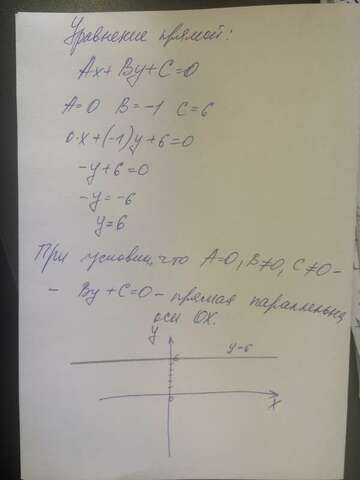 Уравнение прямой:
Ax + By + C = 0
A=0 B=-1 C=6
0·x+(-1)y+6=0
-y+6=0
-y=-6
y=6
При условии, что A=0, B≠0, C≠0 -
- By + C=0 - прямая параллельна
оси OX.
y
6
y=6
0
x